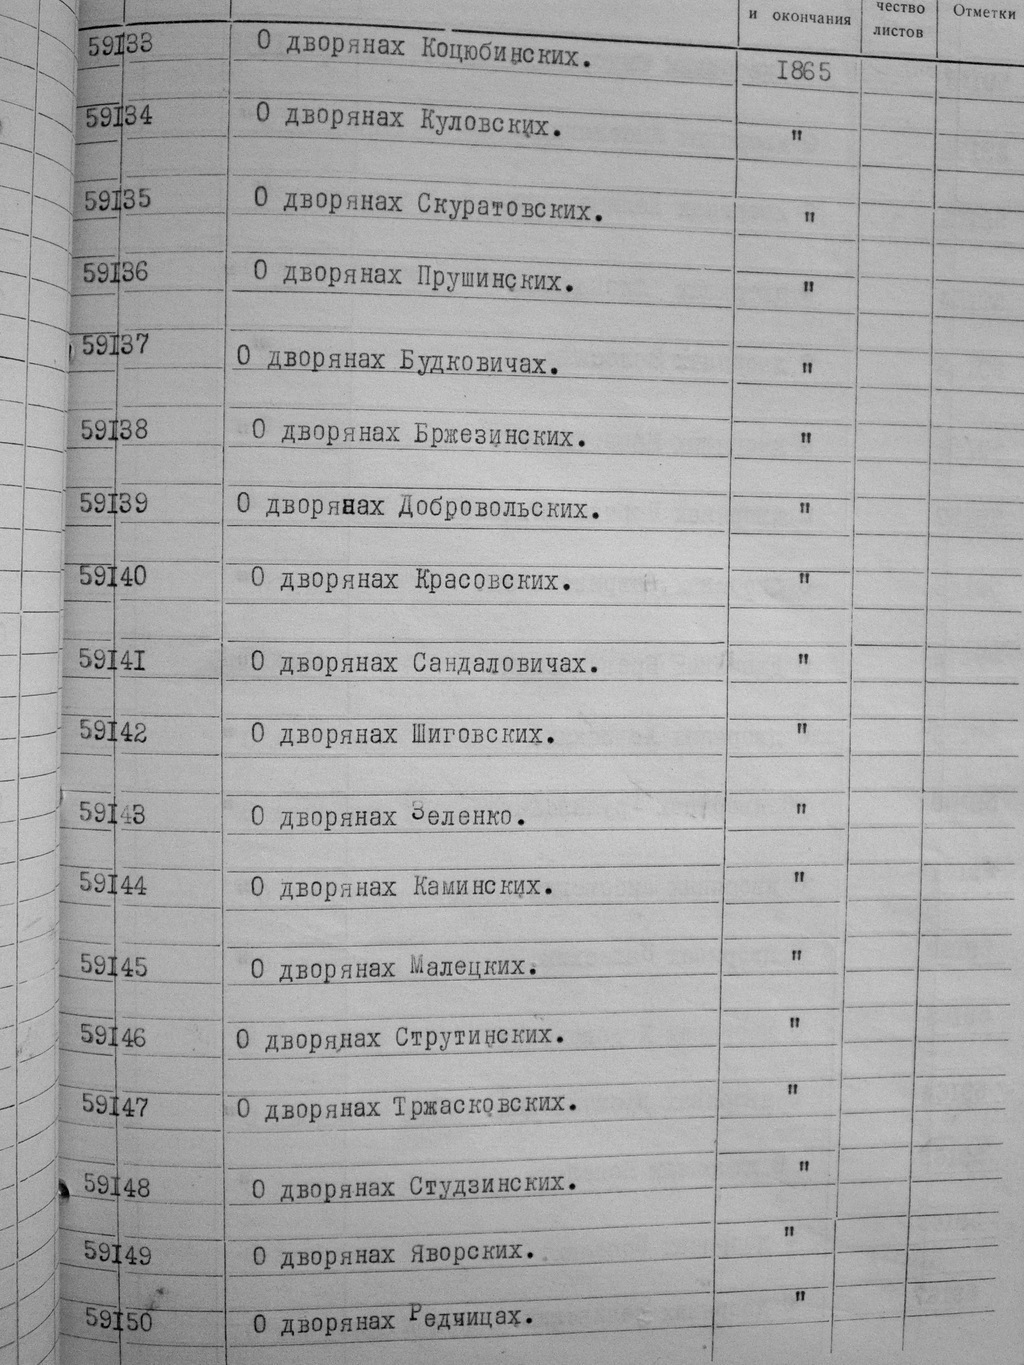 и окончания
чество
листов
Отметки
59133 О дворянах Коцюбинских. 1865
59134 О дворянах Куловских. "
59135 О дворянах Скуратовских. "
59136 О дворянах Прушинских. "
59137 О дворянах Будковичах. "
59138 О дворянах Бржезинских. "
59139 О дворянах Добровольских. "
59140 О дворянах Красовских. "
59141 О дворянах Сандаловичах. "
59142 О дворянах Шиговских. "
59143 О дворянах Зеленко. "
59144 О дворянах Каминских. "
59145 О дворянах Малецких. "
59146 О дворянах Струтинских. "
59147 О дворянах Тржасковских. "
59148 О дворянах Студзинских. "
59149 О дворянах Яворских. "
59150 О дворянах Редчицах. "